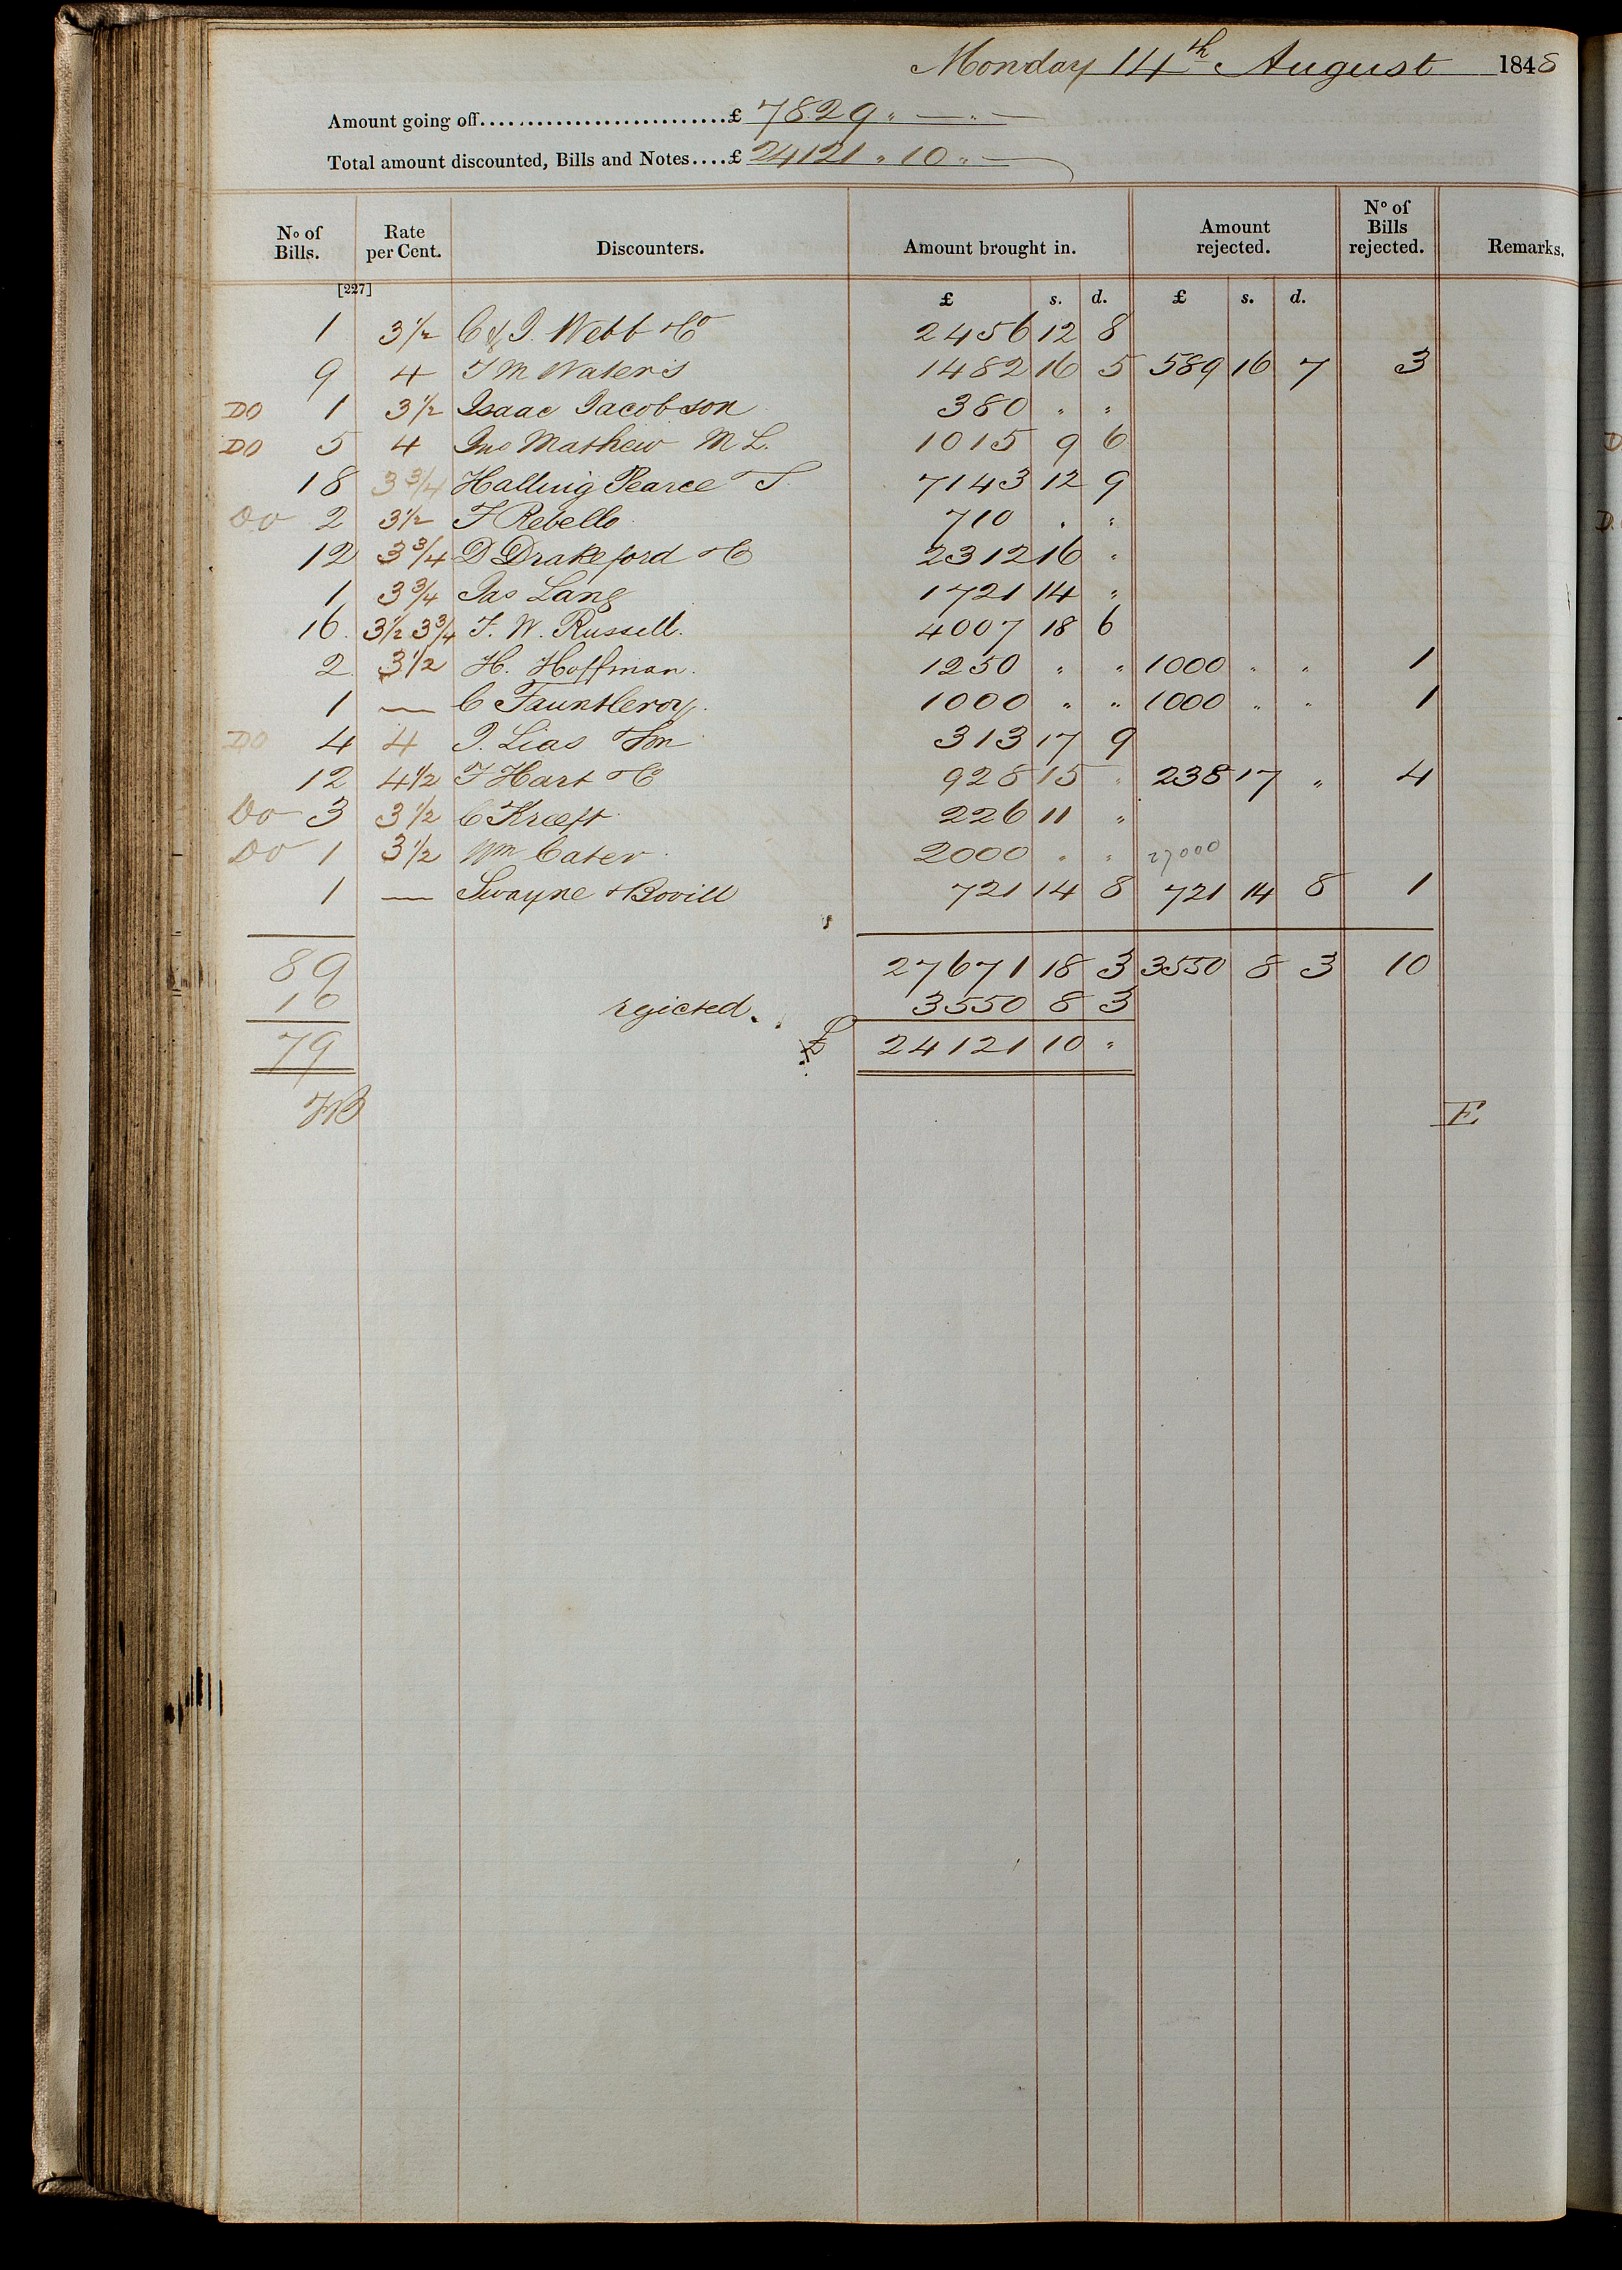 Monday 14th August 1848
Amount going off...........................£ 7829 " — " —
Total amount discounted, Bills and Notes....£ 24121 " 10 " —
No of Bills. Rate per Cent. Discounters. Amount brought in. Amount rejected. No of Bills rejected. Remarks.
[227]
£ s. d. £ s. d.
1 3½ C & J. Webb & Co 2456 12 8
9 4 T M Waters 1482 16 5 589 16 7 3
DO 1 3½ Isaac Jacobson 380 " "
DO 5 4 Jno Mathew M L. 1015 9 6
18 3¾ Halling Pearce & S 7143 12 9
Do 2 3½ F Rebello 710 " "
12 3¾ D Drakeford & C 2312 16 "
1 3¾ Jas Lang 1721 14 "
16 3½ 3¾ F. W. Russell. 4007 18 6
2 3½ H. Hoffman. 1250 " " 1000 " " 1
1 — C Fauntleroy. 1000 " " 1000 " " 1
DO 4 4 J. Lias & Son 313 17 9
12 4½ F Hart & C 928 15 " 238 17 " 4
Do 3 3½ C Kreeft 226 11 "
Do 1 3½ Wm Cater 2000 " " 27000
1 — Swayne & Bovill 721 14 8 721 14 8 1
89 27671 18 3 3550 8 3 10
10 rejected. 3550 8 3
79 £ 24121 10 "
E